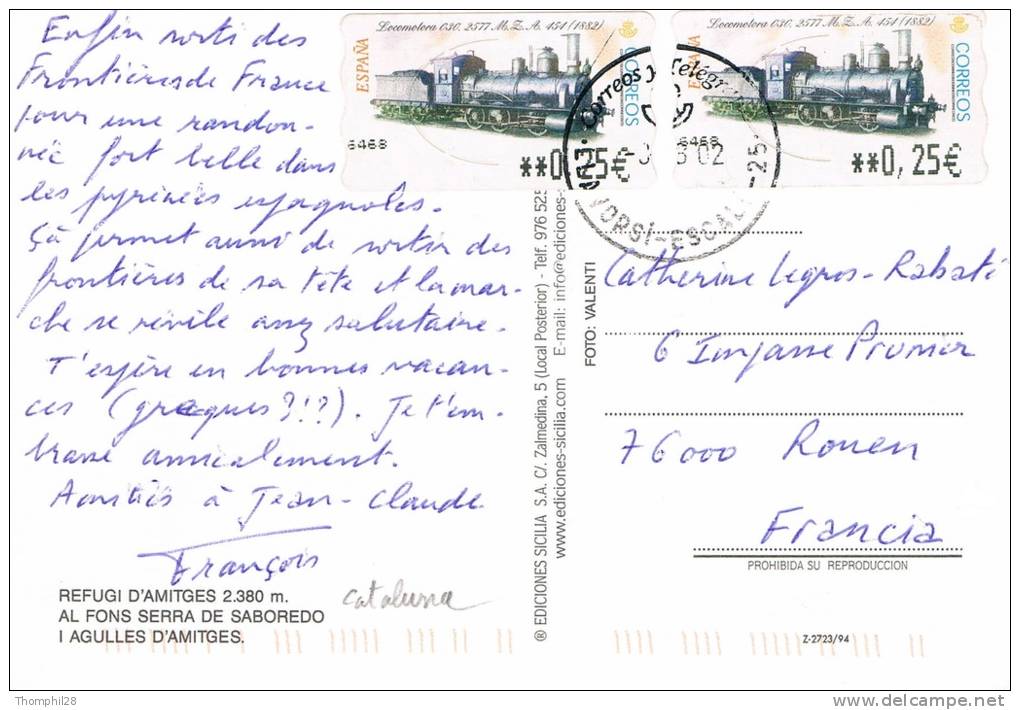 Enfin sorti des
Frontières de France
pour une randon-
née fort belle dans
les pyrénées espagnoles.
Çà permet aussi de sortir des
frontières de sa tête et la mar-
che se révèle assez salutaire.
T'espère en bonnes vacan-
ces (grecques?!?). Je t'em-
brasse amicalement.
Amitiés à Jean-Claude
François
REFUGI D'AMITGES 2.380 m.
AL FONS SERRA DE SABOREDO
I AGULLES D'AMITGES.
Cataluna
® EDICIONES SICILIA S.A. C/. Zalmedina, 5 (Local Posterior) - Telf. 976 525
www.ediciones-sicilia.com E-mail: info@ediciones-
FOTO: VALENTI
Locomotora 030, 2577 M.Z.A. 451 (1882)
ESPAÑA
CORREOS
6468
**0,25€
Locomotora 030, 2577 M.Z.A. 451 (1882)
ESPAÑA
CORREOS
6468
**0,25€
Correos y Telégr
02
VORSÍ-ESCAL
-25-
Catherine Legros-Rabaté
6 Impasse Prunier
76000 Rouen
Francia
PROHIBIDA SU REPRODUCCION
Z-2723/94
Thomphil28